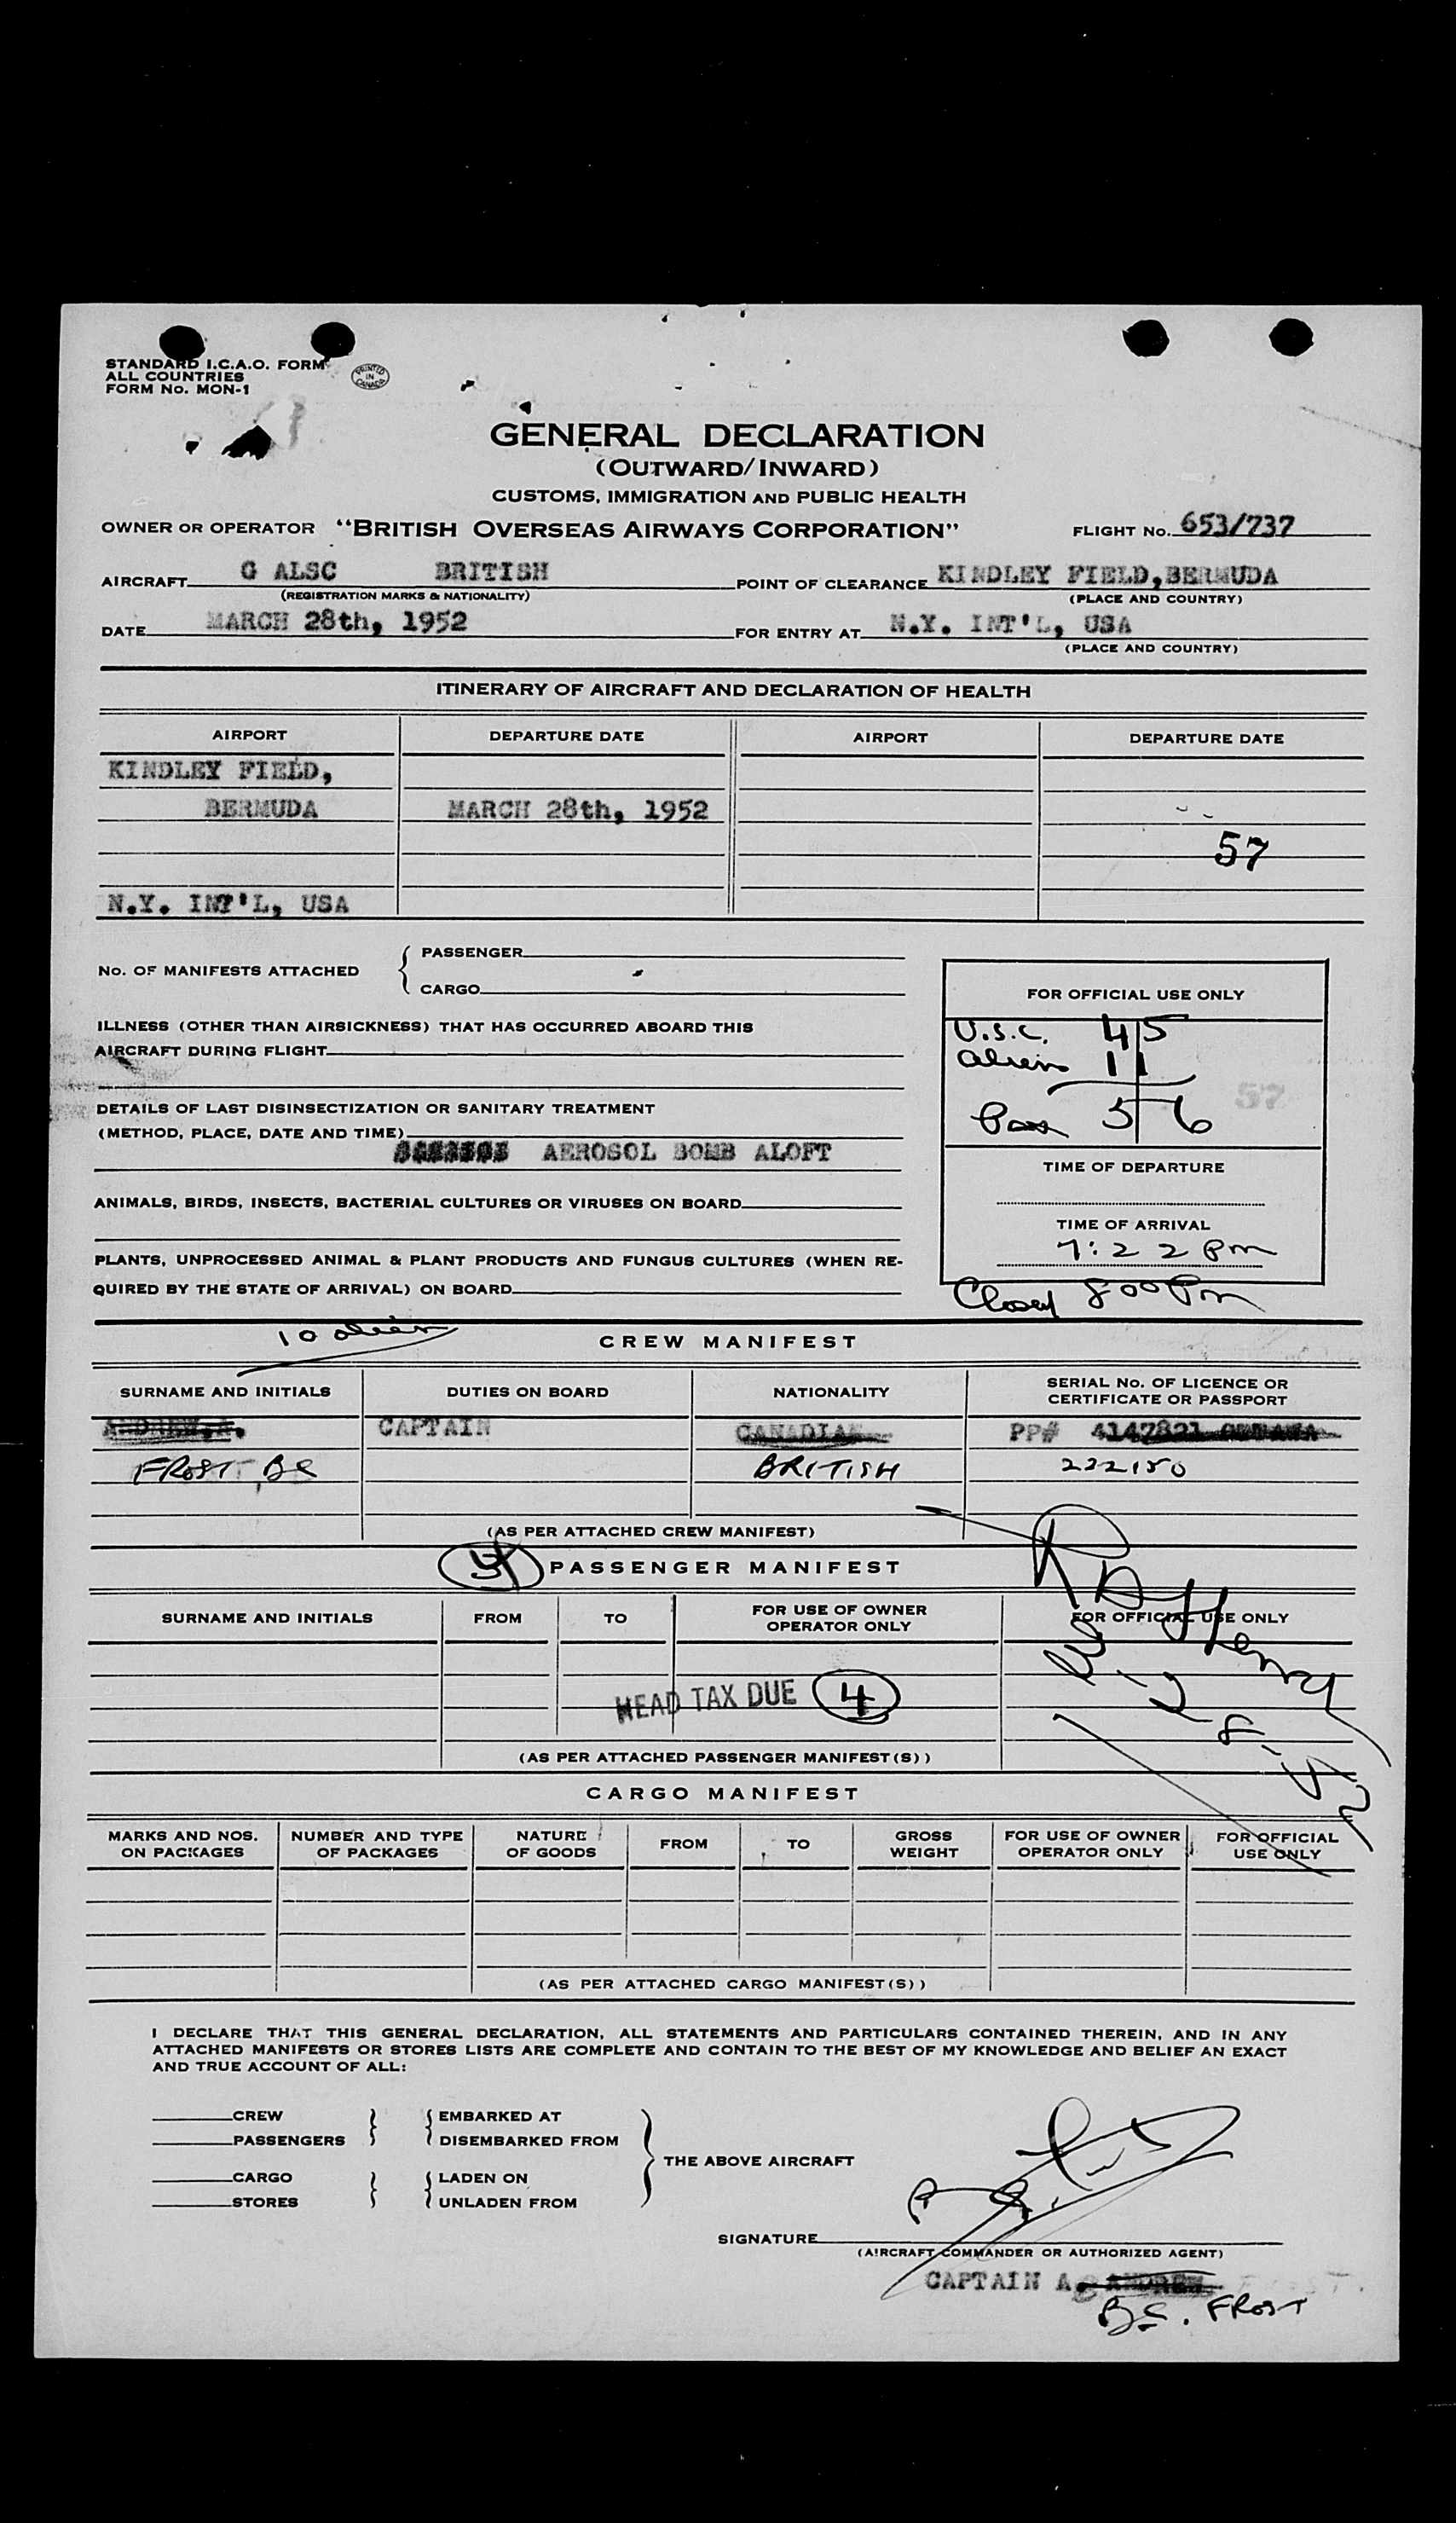 STANDARD I.C.A.O. FORM
ALL COUNTRIES
FORM No. MON-1
PRINTED IN CANADA
GENERAL DECLARATION
(OUTWARD/INWARD)
CUSTOMS, IMMIGRATION AND PUBLIC HEALTH
OWNER OR OPERATOR "BRITISH OVERSEAS AIRWAYS CORPORATION" FLIGHT No. 653/737
AIRCRAFT G ALSC BRITISH POINT OF CLEARANCE KINDLEY FIELD, BERMUDA
(REGISTRATION MARKS & NATIONALITY) (PLACE AND COUNTRY)
DATE MARCH 28th, 1952 FOR ENTRY AT N.Y. INT'L, USA
(PLACE AND COUNTRY)
ITINERARY OF AIRCRAFT AND DECLARATION OF HEALTH
AIRPORT DEPARTURE DATE AIRPORT DEPARTURE DATE
KINDLEY FIELD,
BERMUDA MARCH 28th, 1952
57
N.Y. INT'L, USA
No. OF MANIFESTS ATTACHED
PASSENGER
CARGO
FOR OFFICIAL USE ONLY
U.S.C. 45
alien 11
57
Pax 56
ILLNESS (OTHER THAN AIRSICKNESS) THAT HAS OCCURRED ABOARD THIS
AIRCRAFT DURING FLIGHT
DETAILS OF LAST DISINSECTIZATION OR SANITARY TREATMENT
(METHOD, PLACE, DATE AND TIME)
AEROSOL BOMB ALOFT
TIME OF DEPARTURE
ANIMALS, BIRDS, INSECTS, BACTERIAL CULTURES OR VIRUSES ON BOARD
TIME OF ARRIVAL
7:22 Pm
PLANTS, UNPROCESSED ANIMAL & PLANT PRODUCTS AND FUNGUS CULTURES (WHEN RE-
QUIRED BY THE STATE OF ARRIVAL) ON BOARD
Closed 8 00 Pm
10 alien
CREW MANIFEST
SURNAME AND INITIALS DUTIES ON BOARD NATIONALITY SERIAL No. OF LICENCE OR
CERTIFICATE OR PASSPORT
ANDREW, A. CAPTAIN CANADIAN PP# 4147821 OTTAWA
FROST, BC BRITISH 222150
(AS PER ATTACHED CREW MANIFEST)
PASSENGER MANIFEST
SURNAME AND INITIALS FROM TO FOR USE OF OWNER
OPERATOR ONLY
FOR OFFICIAL USE ONLY
HEAD TAX DUE 4
(AS PER ATTACHED PASSENGER MANIFEST(S))
CARGO MANIFEST
MARKS AND NOS.
ON PACKAGES
NUMBER AND TYPE
OF PACKAGES
NATURE
OF GOODS
FROM TO
GROSS
WEIGHT
FOR USE OF OWNER
OPERATOR ONLY
FOR OFFICIAL
USE ONLY
(AS PER ATTACHED CARGO MANIFEST(S))
I DECLARE THAT THIS GENERAL DECLARATION, ALL STATEMENTS AND PARTICULARS CONTAINED THEREIN, AND IN ANY
ATTACHED MANIFESTS OR STORES LISTS ARE COMPLETE AND CONTAIN TO THE BEST OF MY KNOWLEDGE AND BELIEF AN EXACT
AND TRUE ACCOUNT OF ALL:
CREW EMBARKED AT
PASSENGERS DISEMBARKED FROM
THE ABOVE AIRCRAFT
CARGO LADEN ON
STORES UNLADEN FROM
SIGNATURE
(AIRCRAFT COMMANDER OR AUTHORIZED AGENT)
CAPTAIN A. ANDREW
BC. FROST